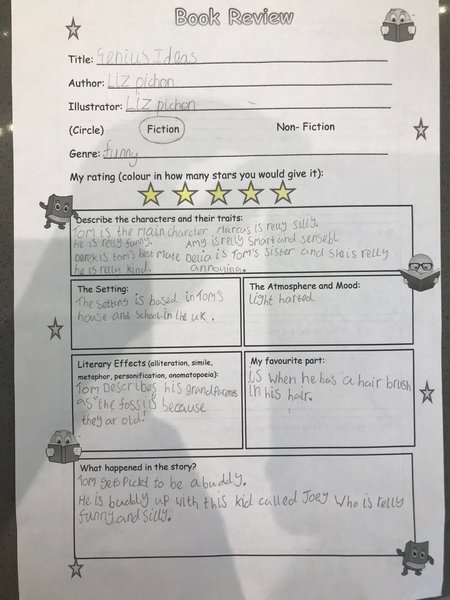 Book Review
Title: Genius Ideas
Author: Liz pichon
Illustrator: Liz pichon
(Circle) Fiction Non- Fiction
Genre: funny
My rating (colour in how many stars you would give it):
Describe the characters and their traits:
Tom is the main charcter Marcus is relly silly.
he is relly funny. Amy is relly smart and sensebl
Derek is tom's best mate Delia is Tom's sister and sha is relly
he is relly kind. annoying.
The Setting:
The setting is based in Tom's
house and school in the uk.
The Atmosphere and Mood:
Light harted
Literary Effects (alliteration, simile,
metaphor, personification, onomatopoeia):
Tom Describes his grandparents
as "the fossils because
they ar old!
My favourite part:
is when he has a hair brush
in his hair.
What happened in the story?
Tom gets pickt to be a buddy.
He is buddy up with this kid called Joey who is relly
funny and silly.